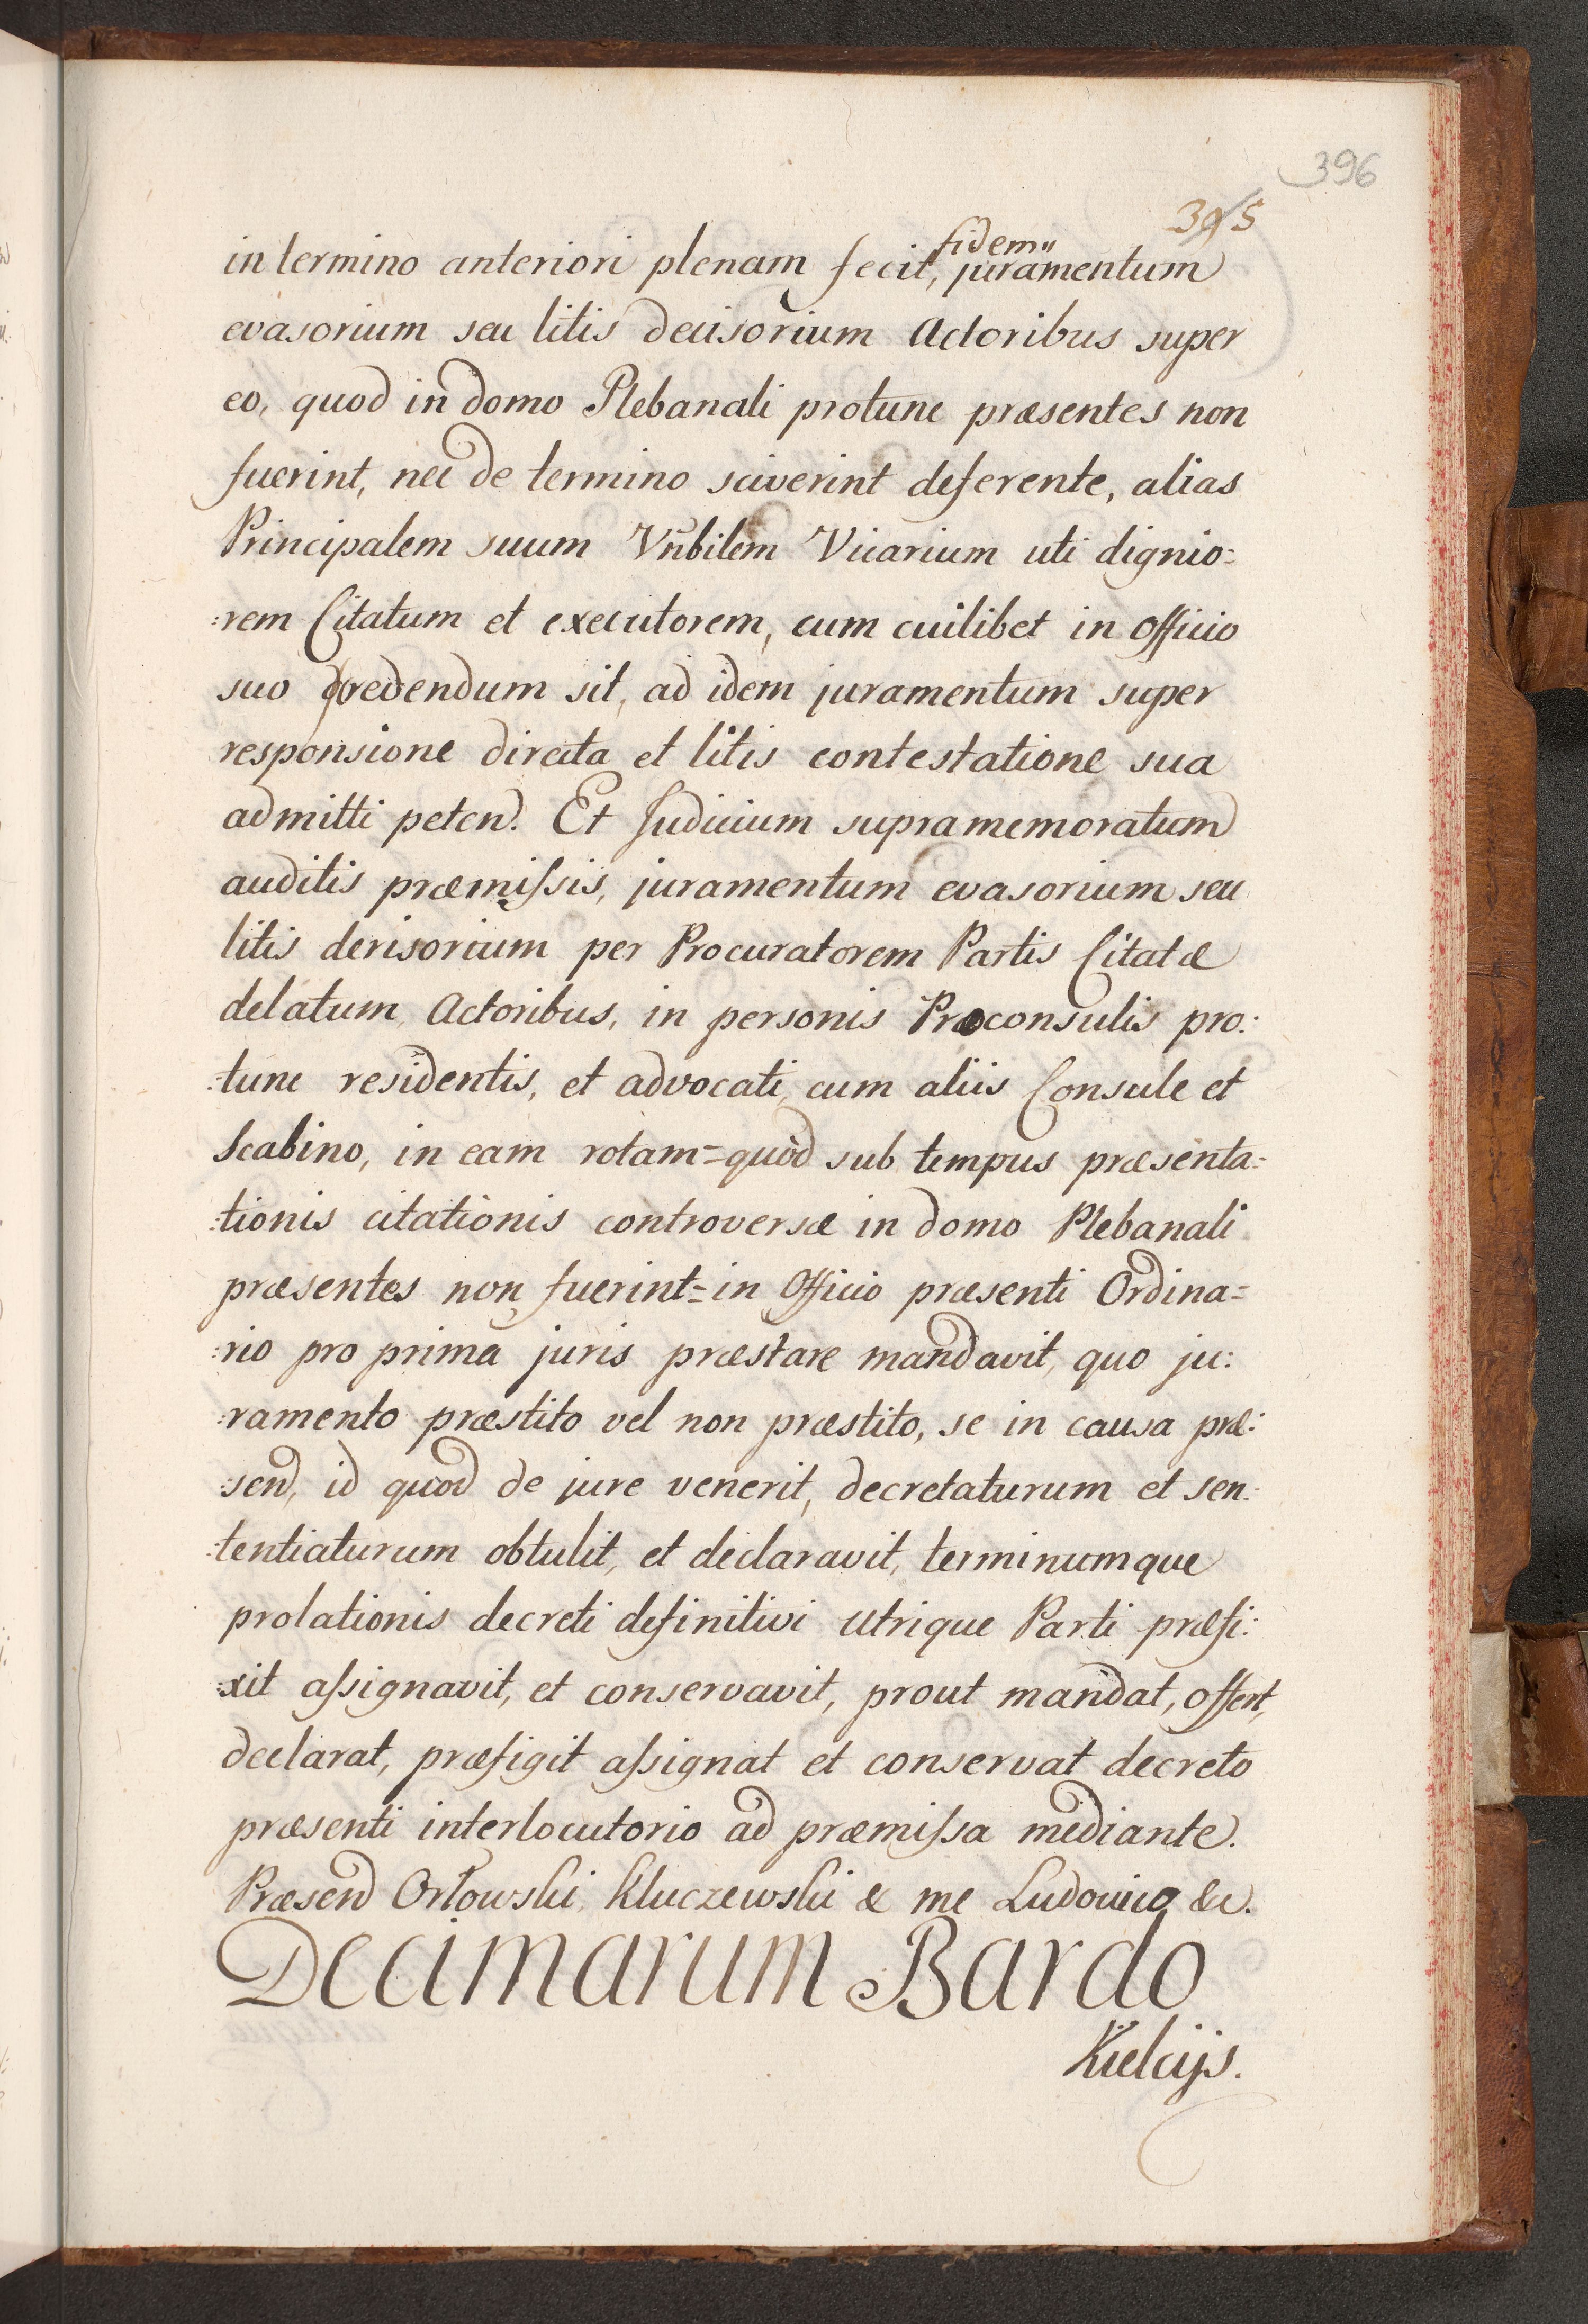 396
395
in termino anteriori plenam fecit, fidem juramentum
evasorium seu litis decisorium Actoribus super
eo, quod in domo Plebanali protunc præsentes non
fuerint, nec de termino sciverint deferente, alias
Principalem suum Vñbilem Vicarium uti dignio=
:rem Citatum et executorem, cum cuilibet in Officio
suo credendum sit, ad idem juramentum super
responsione directa et litis contestatione sua
admitti peten). Et Judicium supramemoratum
auditis præmissis, juramentum evasorium seu
litis derisorium per Procuratorem Partis Citatæ
delatum Actoribus, in personis Proconsulis pro:
:tunc residentis, et advocati, cum aliis Consule et
Scabino, in eam rotam=quòd sub tempus præsenta=
:tionis citationis controversæ in domo Plebanali
præsentes non fuerint=in Officio præsenti Ordina=
:rio pro prima juris præstare mandavit, quo ju:
:ramento præstito vel non præstito, se in causa præ:
:sen), id quod de jure venerit, decretaturum et sen:
:tentiaturum obtulit, et declaravit, terminumque
prolationis decreti definitivi utrique Parti præfi:
:xit assignavit, et conservavit, prout mandat, offert,
declarat, præfigit assignat et conservat decreto
præsenti interlocutorio ad præmissa mediante.
Præsen) Orłowski, Kluczewski & me Ludovico &c.
Decimarum Bardo
Kielcijs.